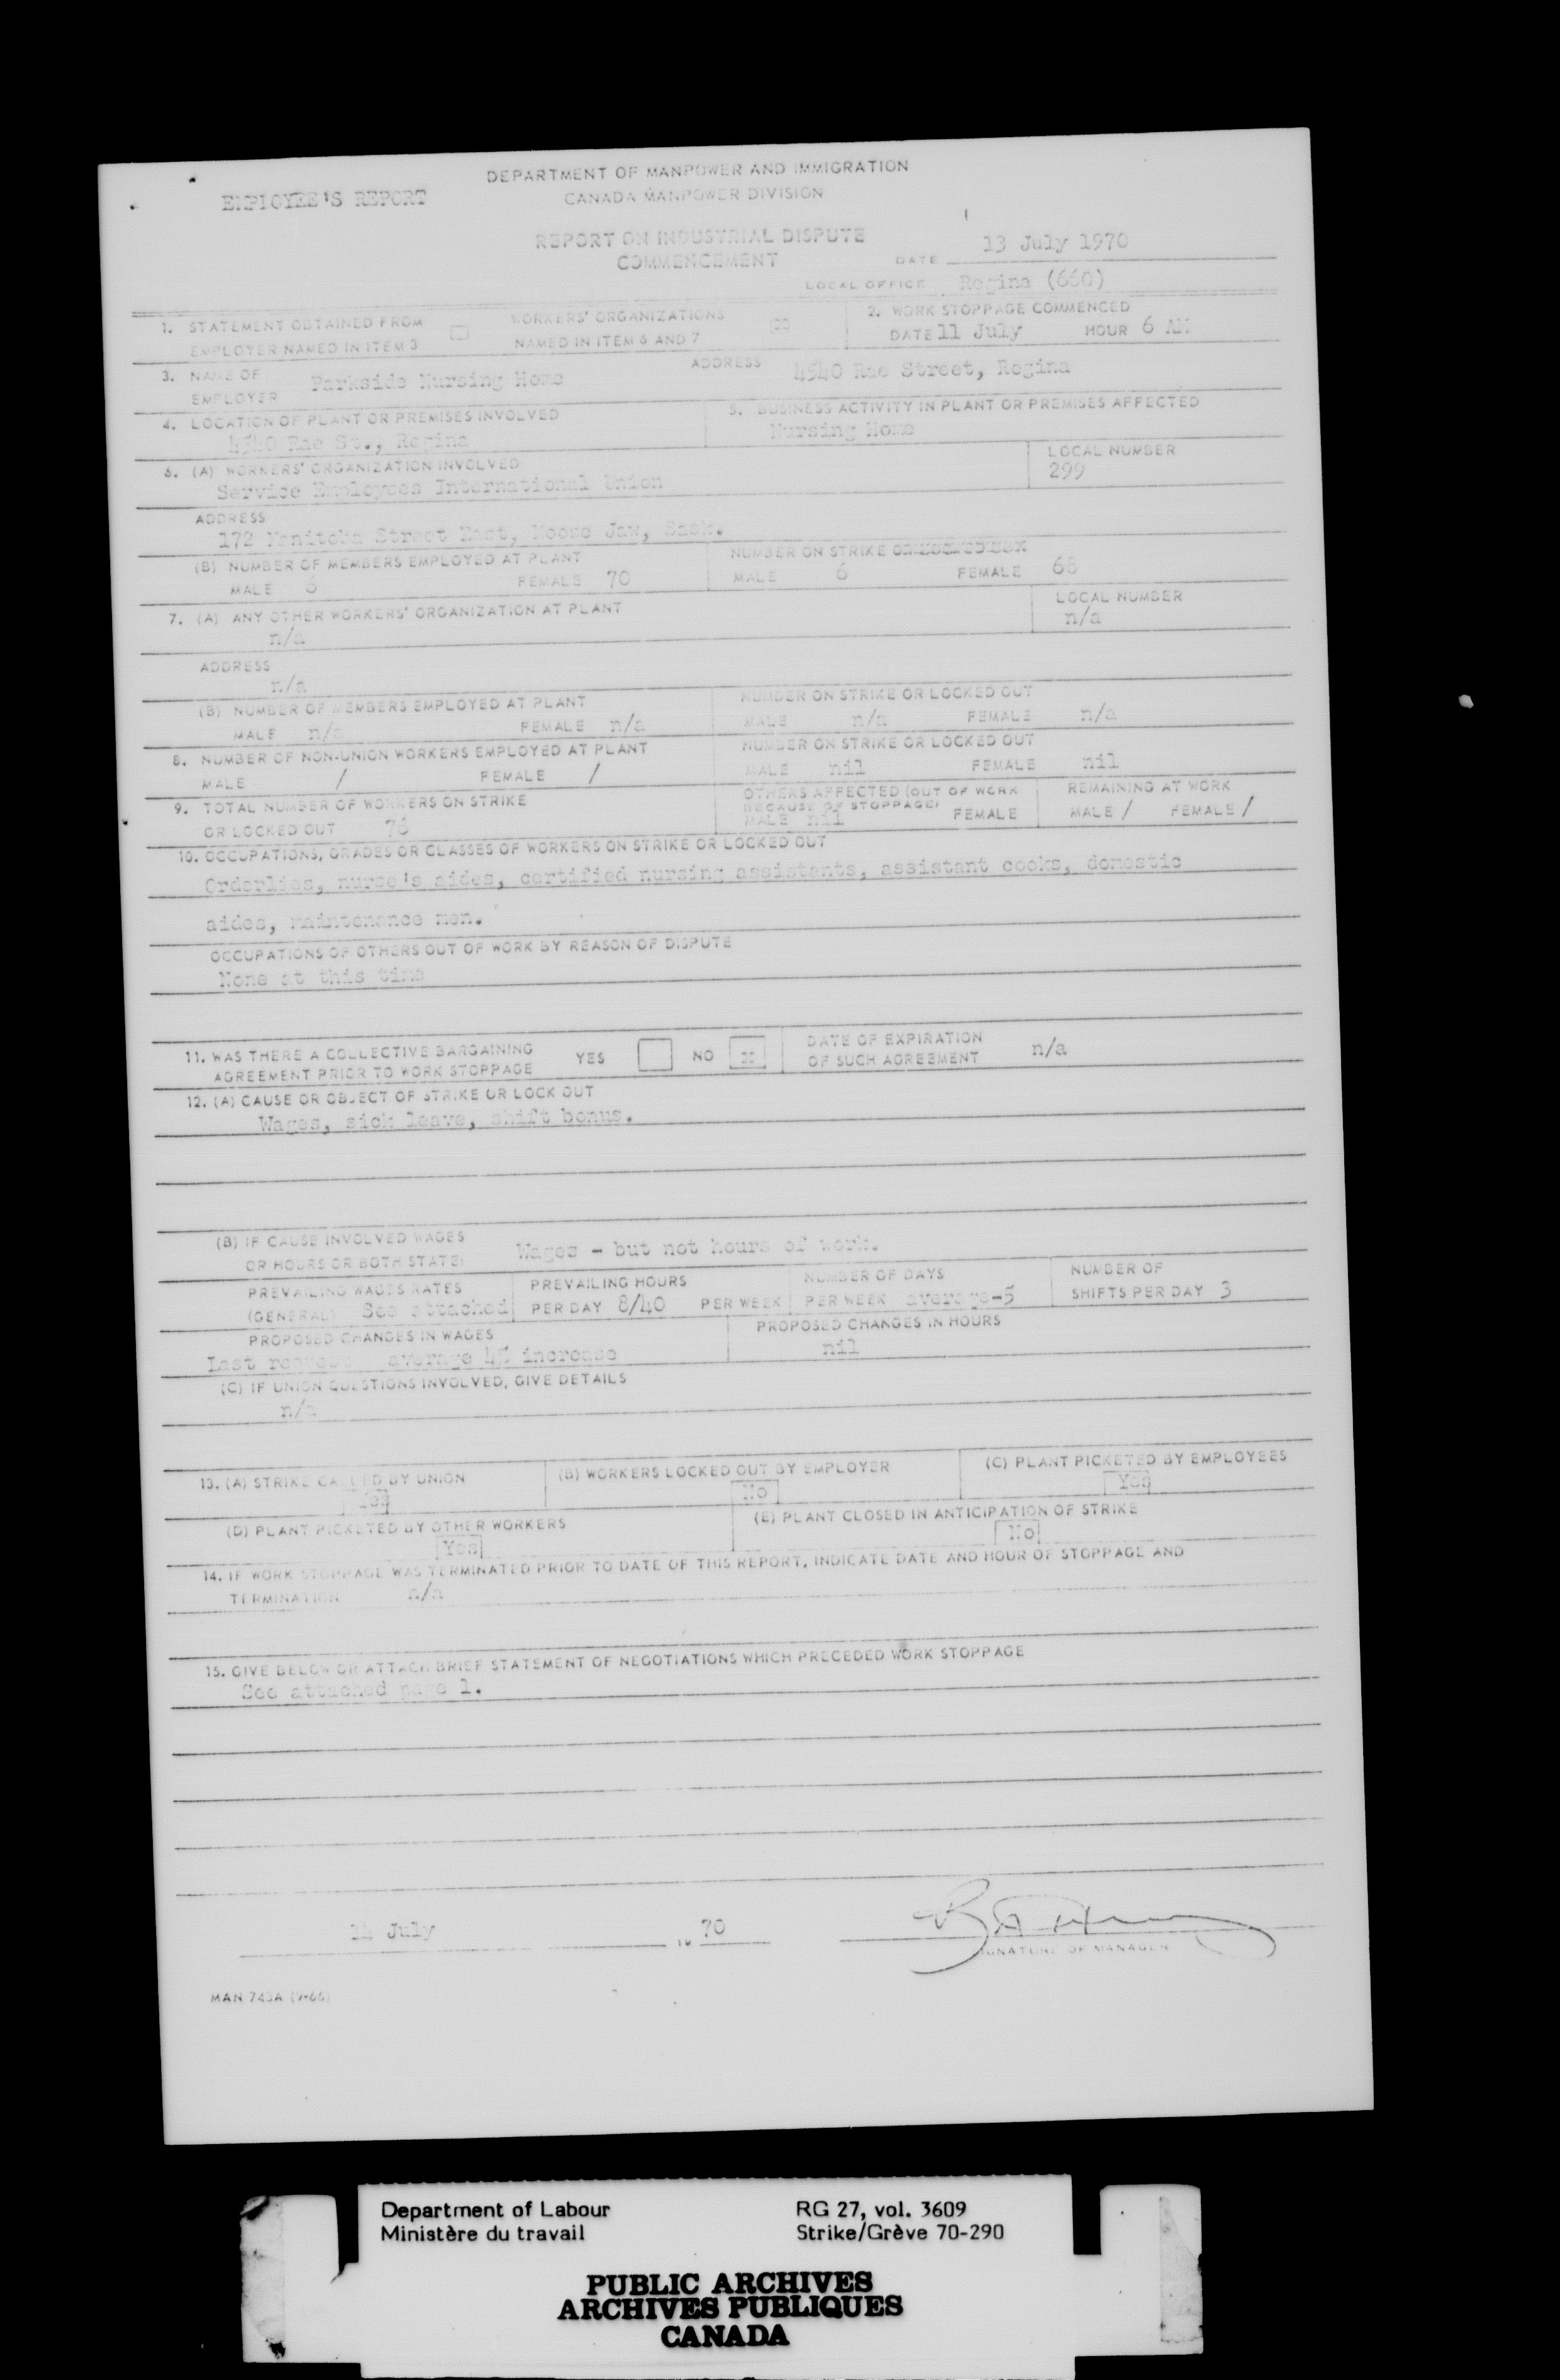 DEPARTMENT OF MANPOWER AND IMMIGRATION
EMPLOYEE'S REPORT
CANADA MANPOWER DIVISION
REPORT ON INDUSTRIAL DISPUTE
COMMENCEMENT
DATE 13 July 1970
LOCAL OFFICE Regina (660)
1. STATEMENT OBTAINED FROM WORKERS' ORGANIZATIONS 2. WORK STOPPAGE COMMENCED
EMPLOYER NAMED IN ITEM 3 NAMED IN ITEM 6 AND 7 DATE 11 July HOUR 6 AM
3. NAME OF EMPLOYER Parkside Nursing Home ADDRESS 4540 Rae Street, Regina
4. LOCATION OF PLANT OR PREMISES INVOLVED 5. BUSINESS ACTIVITY IN PLANT OR PREMISES AFFECTED
4540 Rae St., Regina Nursing Home
6. (A) WORKERS' ORGANIZATION INVOLVED LOCAL NUMBER
Service Employees International Union 299
ADDRESS
172 Manitoba Street East, Moose Jaw, Sask.
(B) NUMBER OF MEMBERS EMPLOYED AT PLANT NUMBER ON STRIKE
MALE 6 FEMALE 70 MALE 6 FEMALE 68
7. (A) ANY OTHER WORKERS' ORGANIZATION AT PLANT LOCAL NUMBER
n/a n/a
ADDRESS
n/a
(B) NUMBER OF MEMBERS EMPLOYED AT PLANT NUMBER ON STRIKE OR LOCKED OUT
MALE n/a FEMALE n/a MALE n/a FEMALE n/a
8. NUMBER OF NON-UNION WORKERS EMPLOYED AT PLANT NUMBER ON STRIKE OR LOCKED OUT
MALE / FEMALE / MALE nil FEMALE nil
9. TOTAL NUMBER OF WORKERS ON STRIKE OTHERS AFFECTED (OUT OF WORK REMAINING AT WORK
BECAUSE OF STOPPAGE)
OR LOCKED OUT MALE nil FEMALE MALE / FEMALE /
10. OCCUPATIONS, GRADES OR CLASSES OF WORKERS ON STRIKE OR LOCKED OUT
Orderlies, nurse's aides, certified nursing assistants, assistant cooks, domestic
aides, maintenance men.
OCCUPATIONS OF OTHERS OUT OF WORK BY REASON OF DISPUTE
None at this time
11. WAS THERE A COLLECTIVE BARGAINING YES NO x DATE OF EXPIRATION
AGREEMENT PRIOR TO WORK STOPPAGE OF SUCH AGREEMENT n/a
12. (A) CAUSE OR OBJECT OF STRIKE OR LOCK OUT
Wages, sick leave, shift bonus.
(B) IF CAUSE INVOLVED WAGES
OR HOURS OR BOTH STATE: Wages - but not hours of work.
PREVAILING WAGES RATES PREVAILING HOURS NUMBER OF DAYS NUMBER OF
(GENERAL) See attached PER DAY 8/40 PER WEEK PER WEEK average-5 SHIFTS PER DAY 3
PROPOSED CHANGES IN WAGES PROPOSED CHANGES IN HOURS
Last request average 4% increase nil
(C) IF UNION QUESTIONS INVOLVED, GIVE DETAILS
n/a
13. (A) STRIKE CALLED BY UNION (B) WORKERS LOCKED OUT BY EMPLOYER (C) PLANT PICKETED BY EMPLOYEES
Yes No Yes
(D) PLANT PICKETED BY OTHER WORKERS (E) PLANT CLOSED IN ANTICIPATION OF STRIKE
Yes No
14. IF WORK STOPPAGE WAS TERMINATED PRIOR TO DATE OF THIS REPORT, INDICATE DATE AND HOUR OF STOPPAGE AND
TERMINATION n/a
15. GIVE BELOW OR ATTACH BRIEF STATEMENT OF NEGOTIATIONS WHICH PRECEDED WORK STOPPAGE
See attached page 1.
14 July 19 70
SIGNATURE OF MANAGER
MAN 743A (9-66)
Department of Labour RG 27, vol. 3609
Ministère du travail Strike/Grève 70-290
PUBLIC ARCHIVES
ARCHIVES PUBLIQUES
CANADA